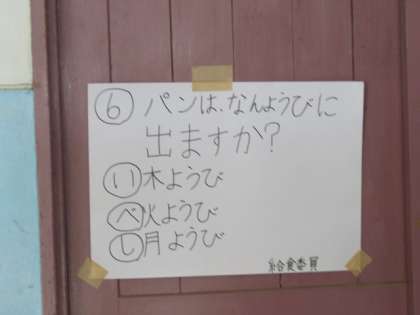 ⑥ パンは、なんようびに
出ますか?
い 木ようび
べ 火ようび
し 月ようび
給食委員